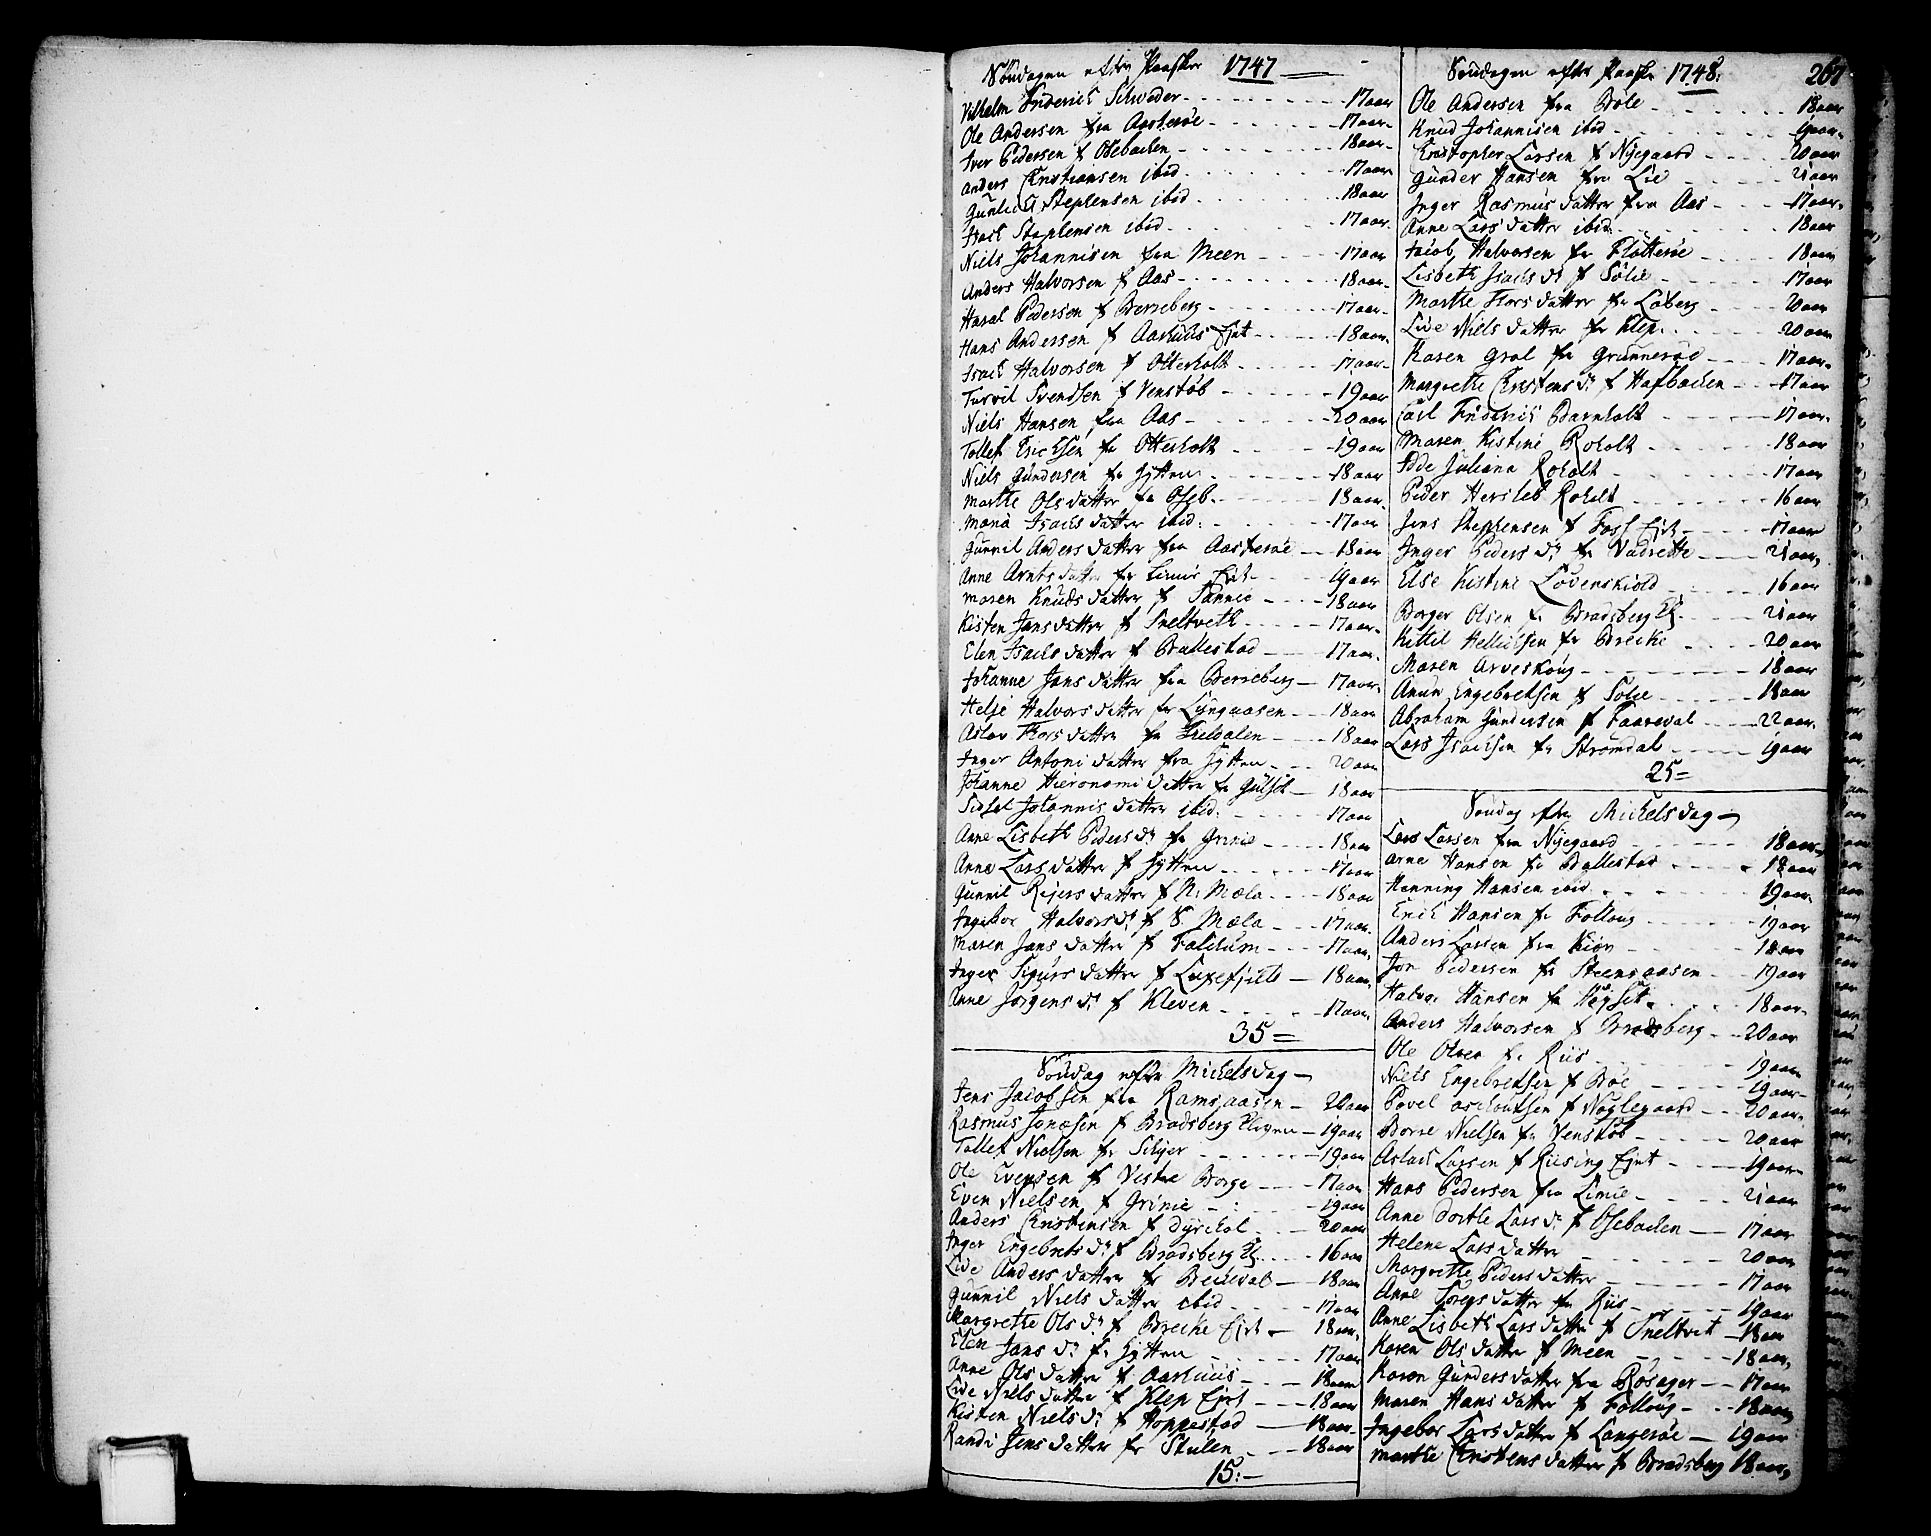 Søndagen efter Paaske 1747
Vilhelm Friderich Schrøder 17 aar
Ole Andersen fra Aasterøe 17 aar
Iver Pedersen f Osebachen 18 aar
Anders Christiansen ibid 17 aar
Gunlich Stephensen ibid 18 aar
Isach Stephensen ibid 17 aar
Niels Johannisen fra Meen 17 aar
Anders Halvorsen f Aas 18 aar
Haral Pedersen f Berreberg 17 aar
Hans Andersen f Aarhuus Ejet 18 aar
Isach Halvorsen f Otterholt 17 aar
Torvil Svendsen f Venstøb 19 aar
Niels Hansen fra Aas 20 aar
Tollef Erichsen fr Otterholt 19 aar
Niels Gundersen fr Hytten 18 aar
Marthe Olsdatter fra Oseb. 18 aar
Maria Isachsdatter ibid: 17 aar
Gunnil Andersdatter fra Aasterøe 18 aar
Anne Arntsdatter fr Limie Ejet 19 aar
Maren Knudsdatter f Sannie 18 aar
Kisten Jansdatter f Sneltveth 17 aar
Elen Isachsdatter f Ballestad 17 aar
Johanne Jansdatter fra Berreberg 17 aar
Helje Halvorsdatter fr Lyngaasen 18 aar
Aslov Thorsdatter fr Trivalen 18 aar
Inger Antonidatter fra Hytten 20 aar
Johanne Hieronomidatter fr Gulset 18 aar
Sidsel Johannisdatter ibid: 17 aar
Anne Lisbeth Pedersdr fr Grinie 18 aar
Anne Larsdatter f Hytten 17 aar
Gunnil Rejersdatter f N. Mæla 18 aar
Ingebor Halvorsdr f S. Mæla 17 aar
Maren Jansdatter f Falchum 17 aar
Inger Sigursdatter f Luxefjeld 18 aar
Anne Jørgensdr f Kleven 17 aar
35 =
Søndag efter Michelsdag
Jens Jacobsen fra Ramsaasen 20 aar
Rasmus Jonasen f Bradsberg Kleven 19 aar
Tollef Nielsen fr Seljer 19 aar
Ole Evensen f Vestre Borge 17 aar
Even Nielsen f Grinie 19 aar
Anders Christensen f Dyrekol 20 aar
Inger Engebretsdr f Bradsberg Kl. 16 aar
Live Andersdatter fr Becheval 18 aar
Gunnil Nielsdatter ibid 17 aar
Margrethe Olsdr f Brecke Ejet 18 aar
Elen Jansdr fr Hytten 17 aar
Anne Olsdatter f Aarhuus 18 aar
Live Nielsdatter f Klep Ejet 18 aar
Kisten Nielsdr f Hoppestad 18 aar
Randi Jensdatter fr Stulen 18 aar
15:
Søndagen efter Paaske 1748: 267
Ole Andersen fra Bole 18 aar
Knud Johannisen ibid 19 aar
Christopher Larsen f Nyegaard 20 aar
Gunder Hansen fra Lie 21 aar
Inger Rasmusdatter fra Aas 17 aar
Anne Larsdatter ibid: 18 aar
Jacob Halvorsen fr Flotterøe 18 aar
Lisbeth Isachsdr f Sølie 17 aar
Marthe Thorsdatter fr Løberg 20 aar
Live Nielsdatter fr Klep 20 aar
Karen Gral fra Grunnerød 17 aar
Margrethe Christensdr f Hafbachen 17 aar
Carl Friderich Barnholt 17 aar
Maren Kistine Roholt 18 aar
Edde Juliana Roholt 17 aar
Peder Hersleb Roholt 16 aar
Jens Stephensen f Foss Ejet 17 aar
Inger Pedersdr fr Vadrette 21 aar
Else Kistine Løvenskiold 16 aar
Børger Olsen fr Bradsberg Kl. 21 aar
Kittil Hellichsen fr Brecke 20 aar
Maren Arveskoug 18 aar
Anun Engebretsen f Solie 18 aar
Abraham Gundersen f Faareval 22 aar
Lars Isachsen fr Strømdal 19 aar
25 =
Søndag efter Michelsdag
Lars Larsen fra Nyegaard 18 aar
Arne Hansen fr Ballestad 18 aar
Henning Hansen ibid 19 aar
Erich Hansen fr Follaug 19 aar
Anders Larsen fra Kiør 18 aar
Jon Pedersen fr Steensaasen 19 aar
Halvor Hansen fr Høyset 18 aar
Anders Halvorsen f Bradsberg 20 aar
Ole Olsen fr Riis 19 aar
Niels Engebretsen f Boe 19 aar
Povel Aschoutsen f Nøglegaard 20 aar
Børre Nielsen fr Venstøb 20 aar
Aslach Larsen f Riising Ejet 19 aar
Hans Pedersen fra Limie 21 aar
Anne Dorthe Larsdr f Osebachen 17 aar
Helene Larsdatter 20 aar
Margrethe Pedersdatter 17 aar
Anne Torersdatter fra Riis 19 aar
Anne Lisbeth Larsdatter f Sneltvet 18 aar
Karen Olsdatter f Meen 18 aar
Karen Gundersdatter fra Røsager 17 aar
Maren Hansdatter f Follaug 18 aar
Ingebor Larsdatter f Langerøe 19 aar
Marthe Christensdatter f Bradsberg 18 aar